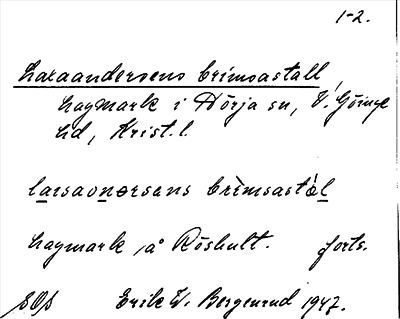 1-2.
Laraandersens brimsastall
hagmark i Hörja sn, V. Göinge
hd, Krist. l.
larsavnərsens brìmsastàl
hagmark å Röshult. forts.
Erik W. Bergenrud 1947.